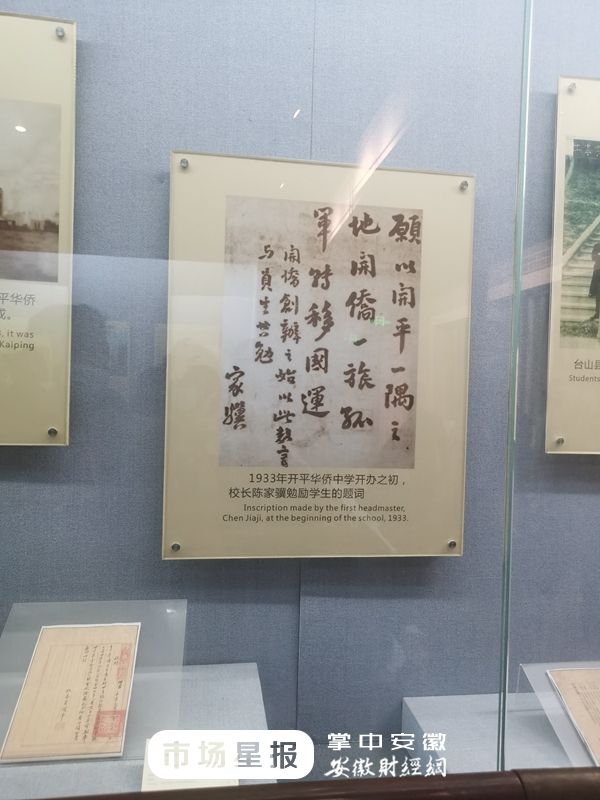 願以開平一隅之
地開僑一旅孤
軍轉移國運
開僑創辦之始以此数言
与員生共勉
家驥
1933年开平华侨中学开办之初，
校长陈家骥勉励学生的题词
Inscription made by the first headmaster,
Chen Jiaji, at the beginning of the school, 1933.
平华侨
成。
, it was
Kaiping
台山县
Students
市场星报
掌中安徽
安徽财经網